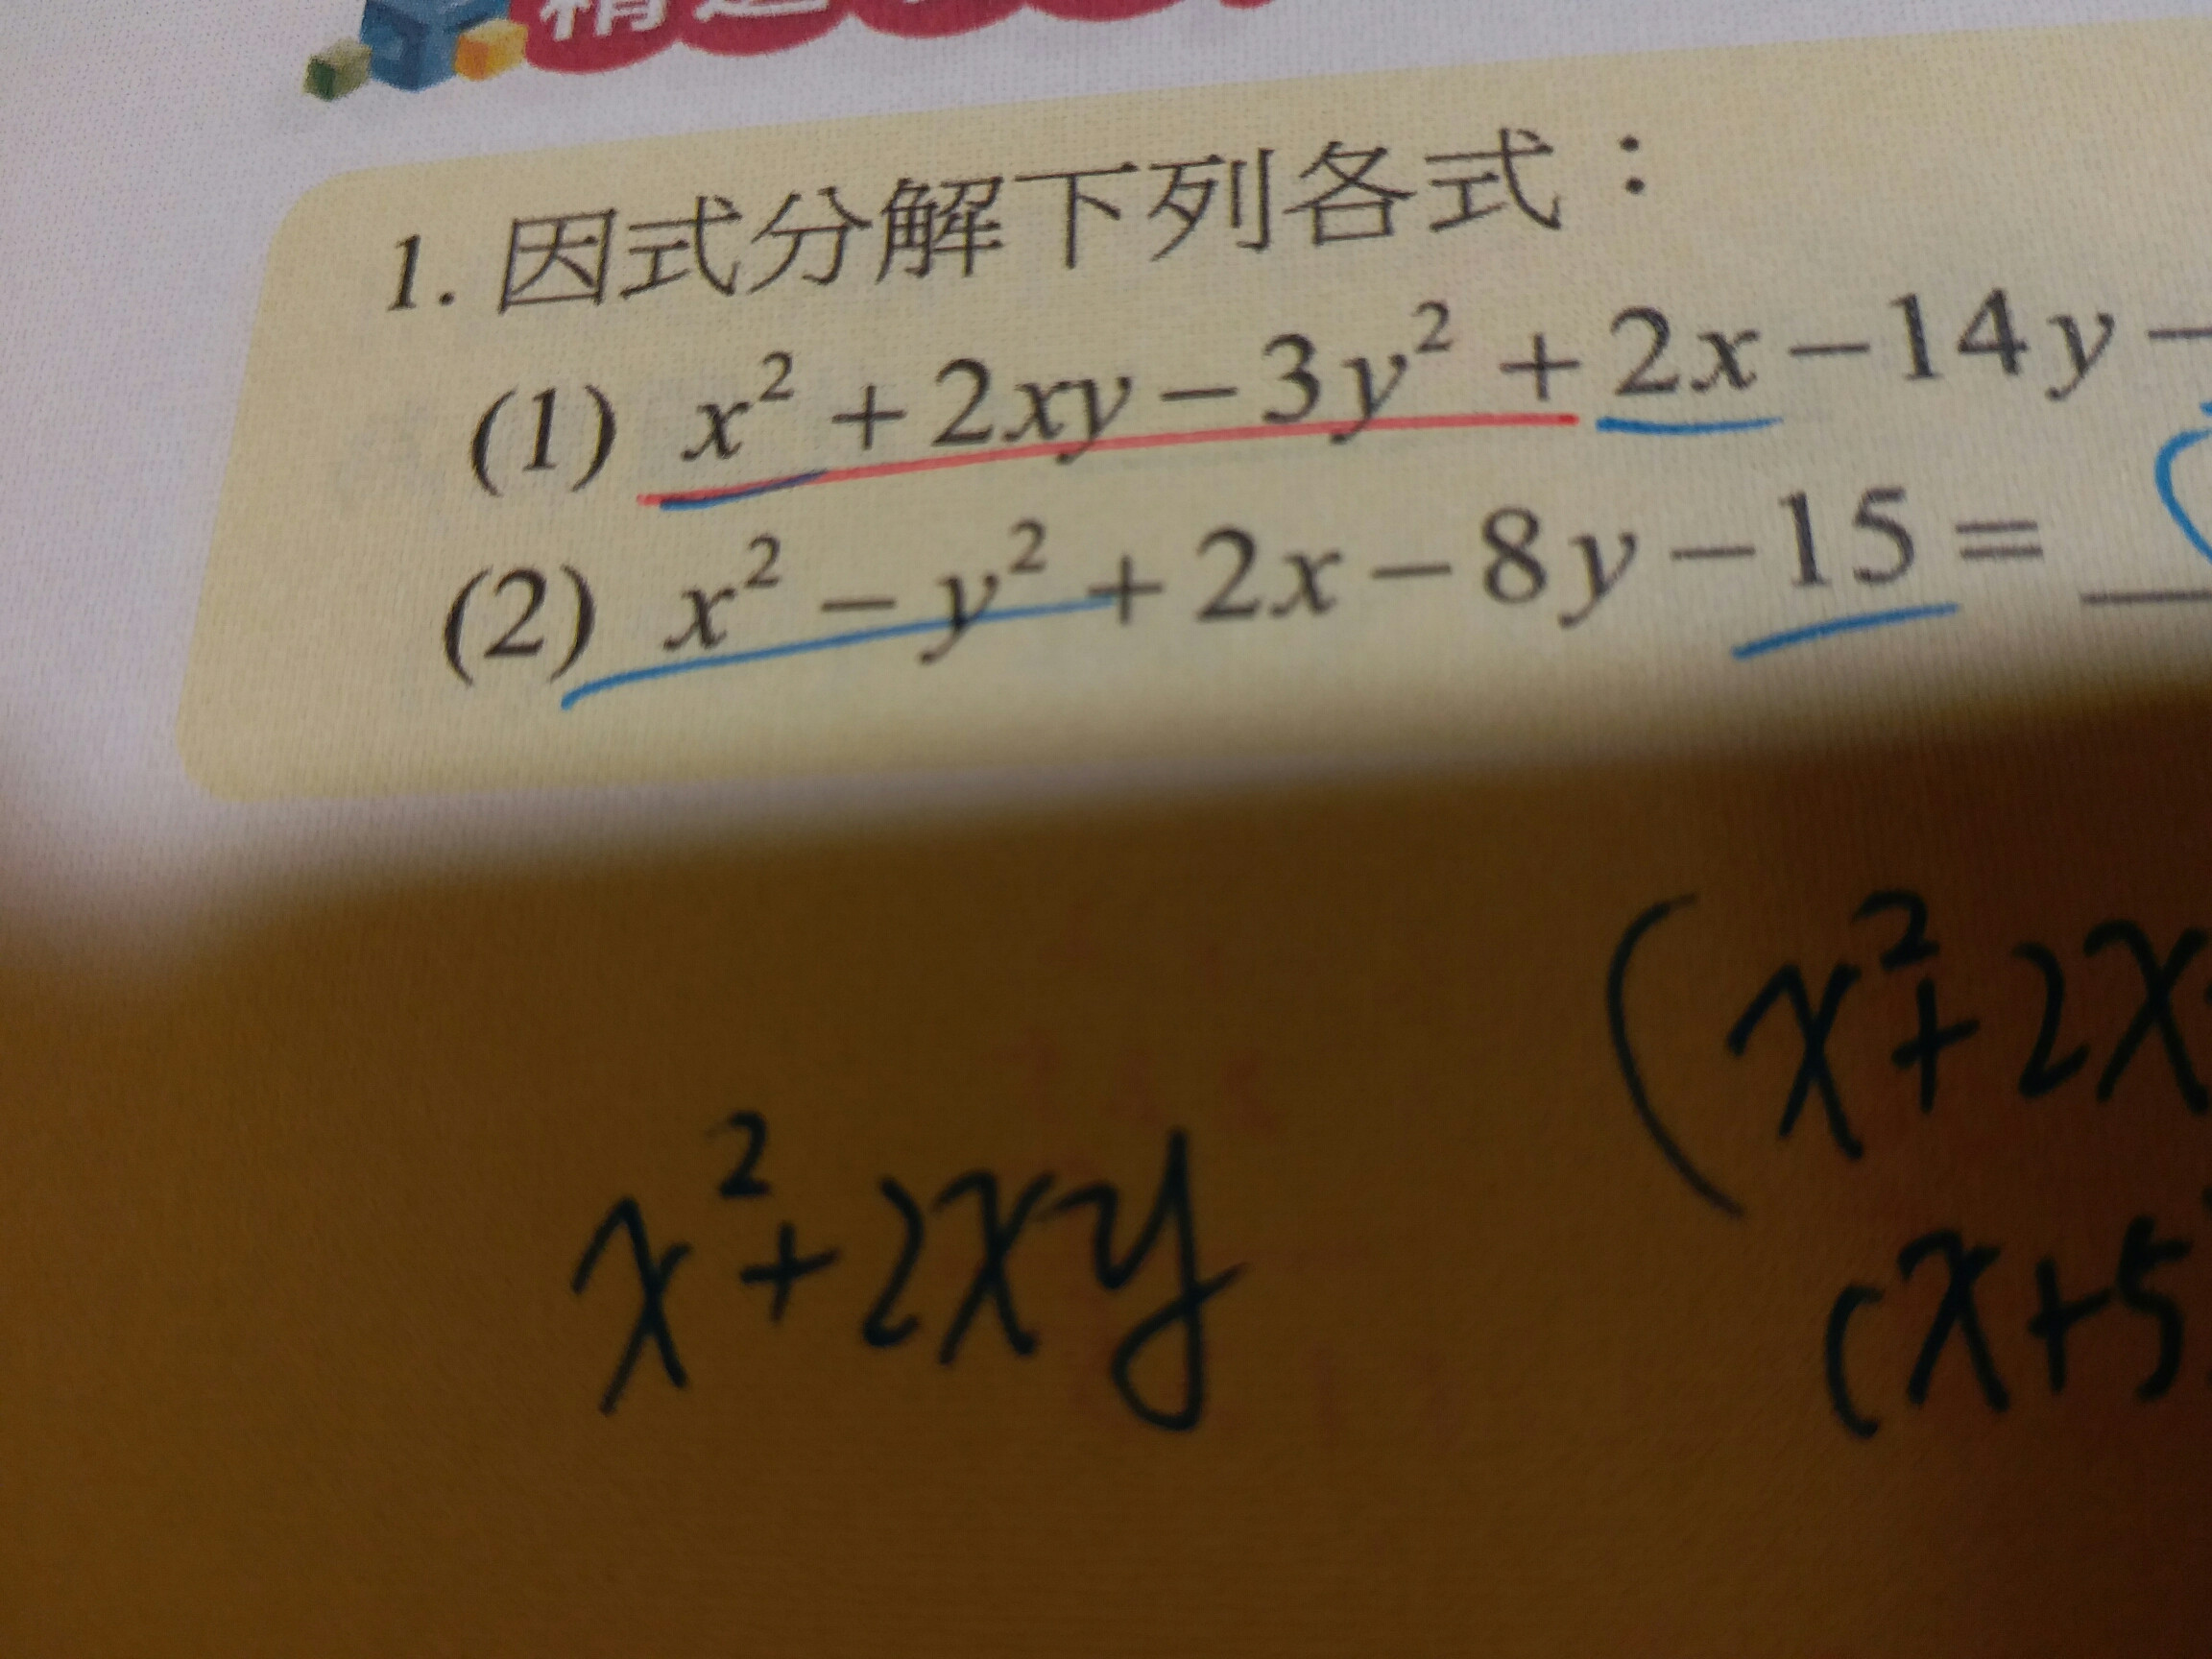 精選
1. 因式分解下列各式：
(1) x² + 2xy − 3y² + 2x − 14y −
(2) x² − y² + 2x − 8y − 15 =
(x²+2x
x²+2xy
(x+5